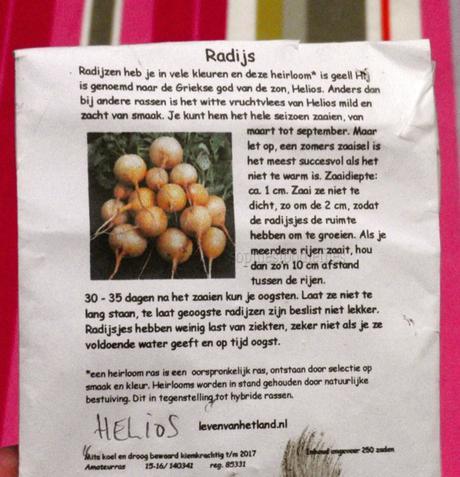 Radijs
Radijzen heb je in vele kleuren en deze heirloom* is geel! Hij
is genoemd naar de Griekse god van de zon, Helios. Anders dan
bij andere rassen is het witte vruchtvlees van Helios mild en
zacht van smaak. Je kunt hem het hele seizoen zaaien, van
maart tot september. Maar
let op, een zomers zaaisel is
het meest succesvol als het
niet te warm is. Zaaidiepte:
ca. 1 cm. Zaai ze niet te
dicht, zo om de 2 cm, zodat
de radijsjes de ruimte
hebben om te groeien. Als je
meerdere rijen zaait, hou
dan zo'n 10 cm afstand
tussen de rijen.
30 - 35 dagen na het zaaien kun je oogsten. Laat ze niet te
lang staan, te laat geoogste radijzen zijn beslist niet lekker.
Radijsjes hebben weinig last van ziekten, zeker niet als je ze
voldoende water geeft en op tijd oogst.
*een heirloom ras is een oorspronkelijk ras, ontstaan door selectie op
smaak en kleur. Heirlooms worden in stand gehouden door natuurlijke
bestuiving. Dit in tegenstelling tot hybride rassen.
HELIOS levenvanhetland.nl
Mits koel en droog bewaard kiemkrachtig t/m 2017 Inhoud ongeveer 250 zaden
Amateurras 15-16/ 140341 reg. 85331